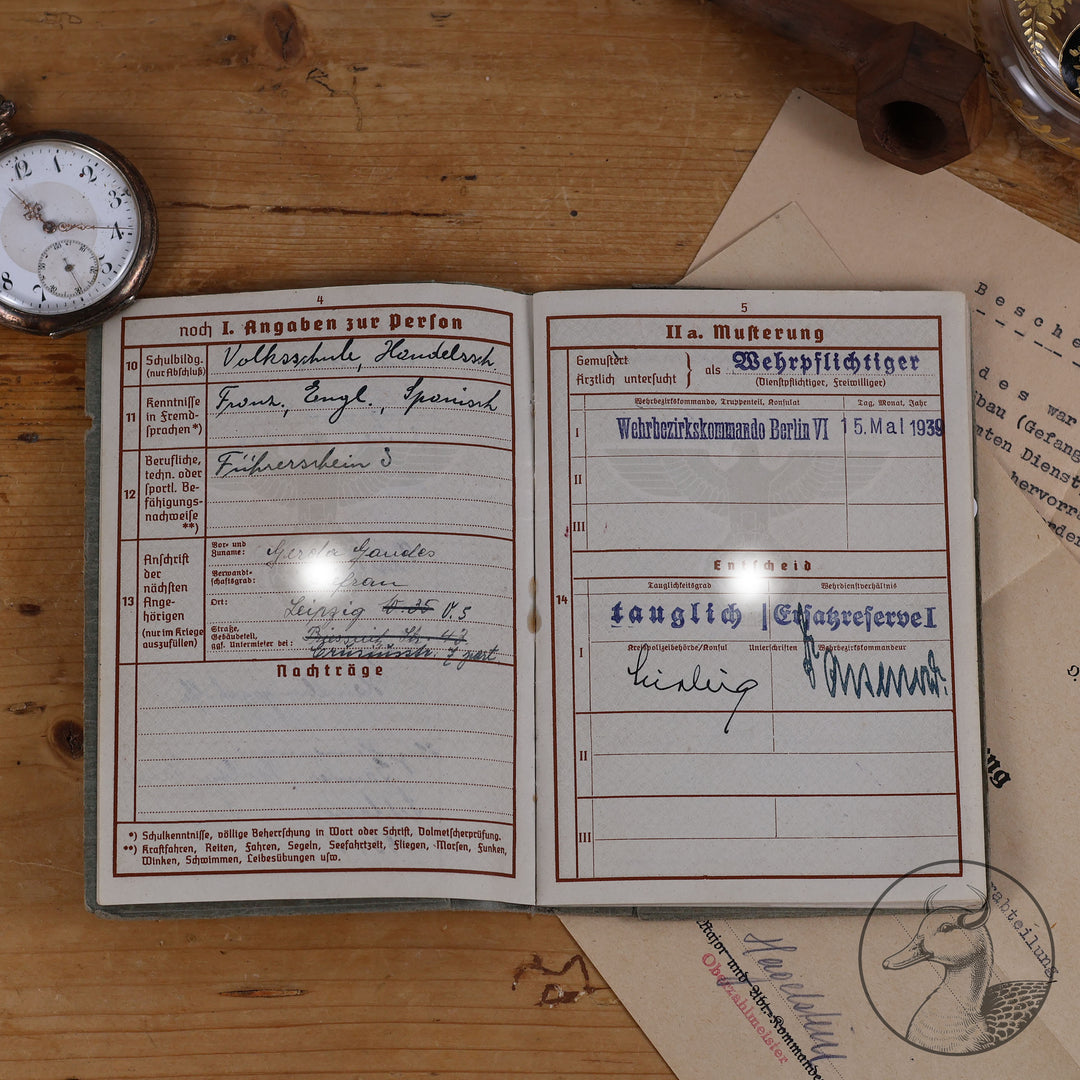 4
noch I. Angaben zur Person
10 Schulbildg. (nur Abschluß)
Volksschule, Handelssch
11 Kenntnisse in Fremdsprachen *)
Franz., Engl., Spanisch
12 Berufliche, techn. oder sportl. Befähigungsnachweise **)
Führerschein 3
13 Anschrift der nächsten Angehörigen (nur im Kriege auszufüllen)
Vor- und Zuname: Gerda
Verwandtschaftsgrad: frau
Ort: Leipzig O.35 O.5
Straße, Gebäudeteil, ggf. Untermieter bei:
Str. 47
7 part
Nachträge
*) Schulkenntnisse, völlige Beherrschung in Wort oder Schrift, Dolmetscherprüfung.
**) Kraftfahren, Reiten, Fahren, Segeln, Seefahrtzeit, Fliegen, Morsen, Funken,
Winken, Schwimmen, Leibesübungen usw.
5
IIa. Musterung
Gemustert
Ärztlich untersucht } als Wehrpflichtiger
(Dienstpflichtiger, Freiwilliger)
Wehrbezirkskommando, Truppenteil, Konsulat Tag, Monat, Jahr
I Wehrbezirkskommando Berlin VI 15. Mai 1939
II
III
Entscheid
14
Tauglichkeitsgrad Wehrdienstverhältnis
tauglich | Ersatzreserve I
I Kreispolizeibehörde/Konsul Unterschriften Wehrbezirkskommandeur
II
III
12 1 2 3 4 7 8
Besche
des war
bau (Gefang
ten Dienst
hervorr
ng
Major und Abt.-Kommandeu
Oberzahlmeister
rabteilung